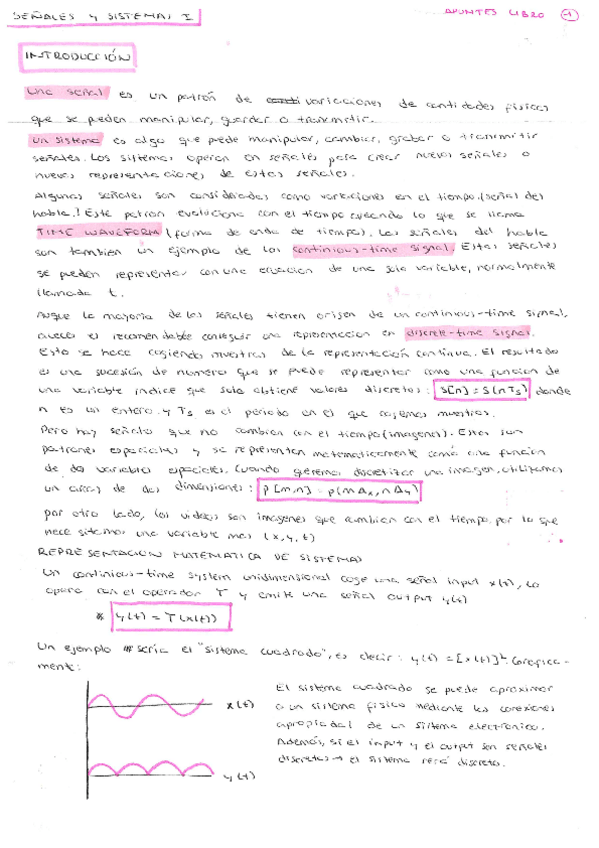 SEÑALES Y SISTEMAS I
APUNTES LIBRO 1
INTRODUCCIÓN
Una señal es un patrón de variaciones de cantidades físicas
que se pueden manipular, guardar o transmitir.
Un sistema es algo que puede manipular, cambiar, grabar o transmitir
señales. Los sistemas operan en señales para crear nuevas señales o
nuevas representaciones de estas señales.
Algunas señales son consideradas como variaciones en el tiempo (señal del
habla). Este patrón evoluciona con el tiempo creando lo que se llama
TIME WAVEFORM (forma de onda de tiempo). Las señales del habla
son también un ejemplo de las continious-time signal. Estas señales
se pueden representar con una ecuación de una sola variable, normalmente
llamada t.
Aunque la mayoría de las señales tienen origen de un continious-time signal,
es recomendable conseguir una representación en discrete-time signal.
Esto se hace cogiendo muestras de la representación continua. El resultado
es una sucesión de números que se puede representar como una función de
una variable índice que solo obtiene valores discretos: s[n] = s(nTs) donde
n es un entero y Ts es el período en el que cogemos muestras.
Pero hay señales que no cambian con el tiempo (imagenes). Estas son
patrones espaciales y se representan matemáticamente como una función
de dos variables espaciales. Cuando queremos discretizar una imagen, utilizamos
un array de dos dimensiones: p[m,n] = p(mΔx, nΔy)
por otro lado, los videos son imagenes que cambian con el tiempo, por lo que
necesitamos una variable mas (x,y,t)
REPRESENTACION MATEMATICA DE SISTEMAS
Un continious-time system unidimensional coge una señal input x(t), la
opera con el operador T y emite una señal output y(t)
* y(t) = T(x(t))
Un ejemplo sería el "sistema cuadrado", es decir: y(t) = [x(t)]² Gráfica-
mente:
x(t)
y(t)
El sistema cuadrado se puede aproximar
a un sistema físico mediante las conexiones
apropiadas de un sistema electrónico.
Además, si el input y el output son señales
discretas → el sistema será discreto.